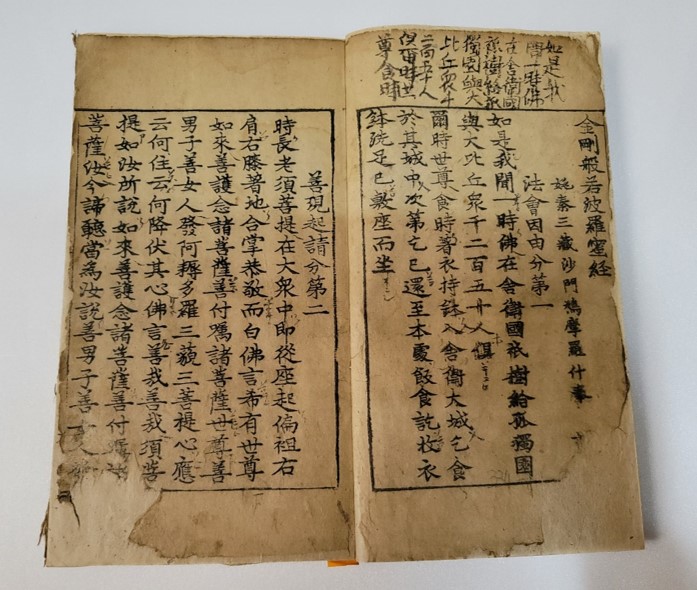 如是我
聞一時佛
在舍衛國
祇樹給孤
獨園與大
比丘衆千
二百五十人
俱爾時世
尊食時
金剛般若波羅蜜經
姚秦三藏沙門鳩摩羅什奉
法會因由分第一
如是我聞一時佛在舍衛國祇樹給孤獨園
與大比丘衆千二百五十人俱
爾時世尊食時著衣持鉢入舍衛大城乞食
於其城中次第乞已還至本處飯食訖收衣
鉢洗足已敷座而坐
善現起請分第二
時長老須菩提在大衆中即從座起偏袒右
肩右膝著地合掌恭敬而白佛言希有世尊
如來善護念諸菩薩善付囑諸菩薩世尊善
男子善女人發阿耨多羅三藐三菩提心應
云何住云何降伏其心佛言善哉善哉須菩
提如汝所說如來善護念諸菩薩善付囑
菩薩汝今諦聽當爲汝說善男子善女人